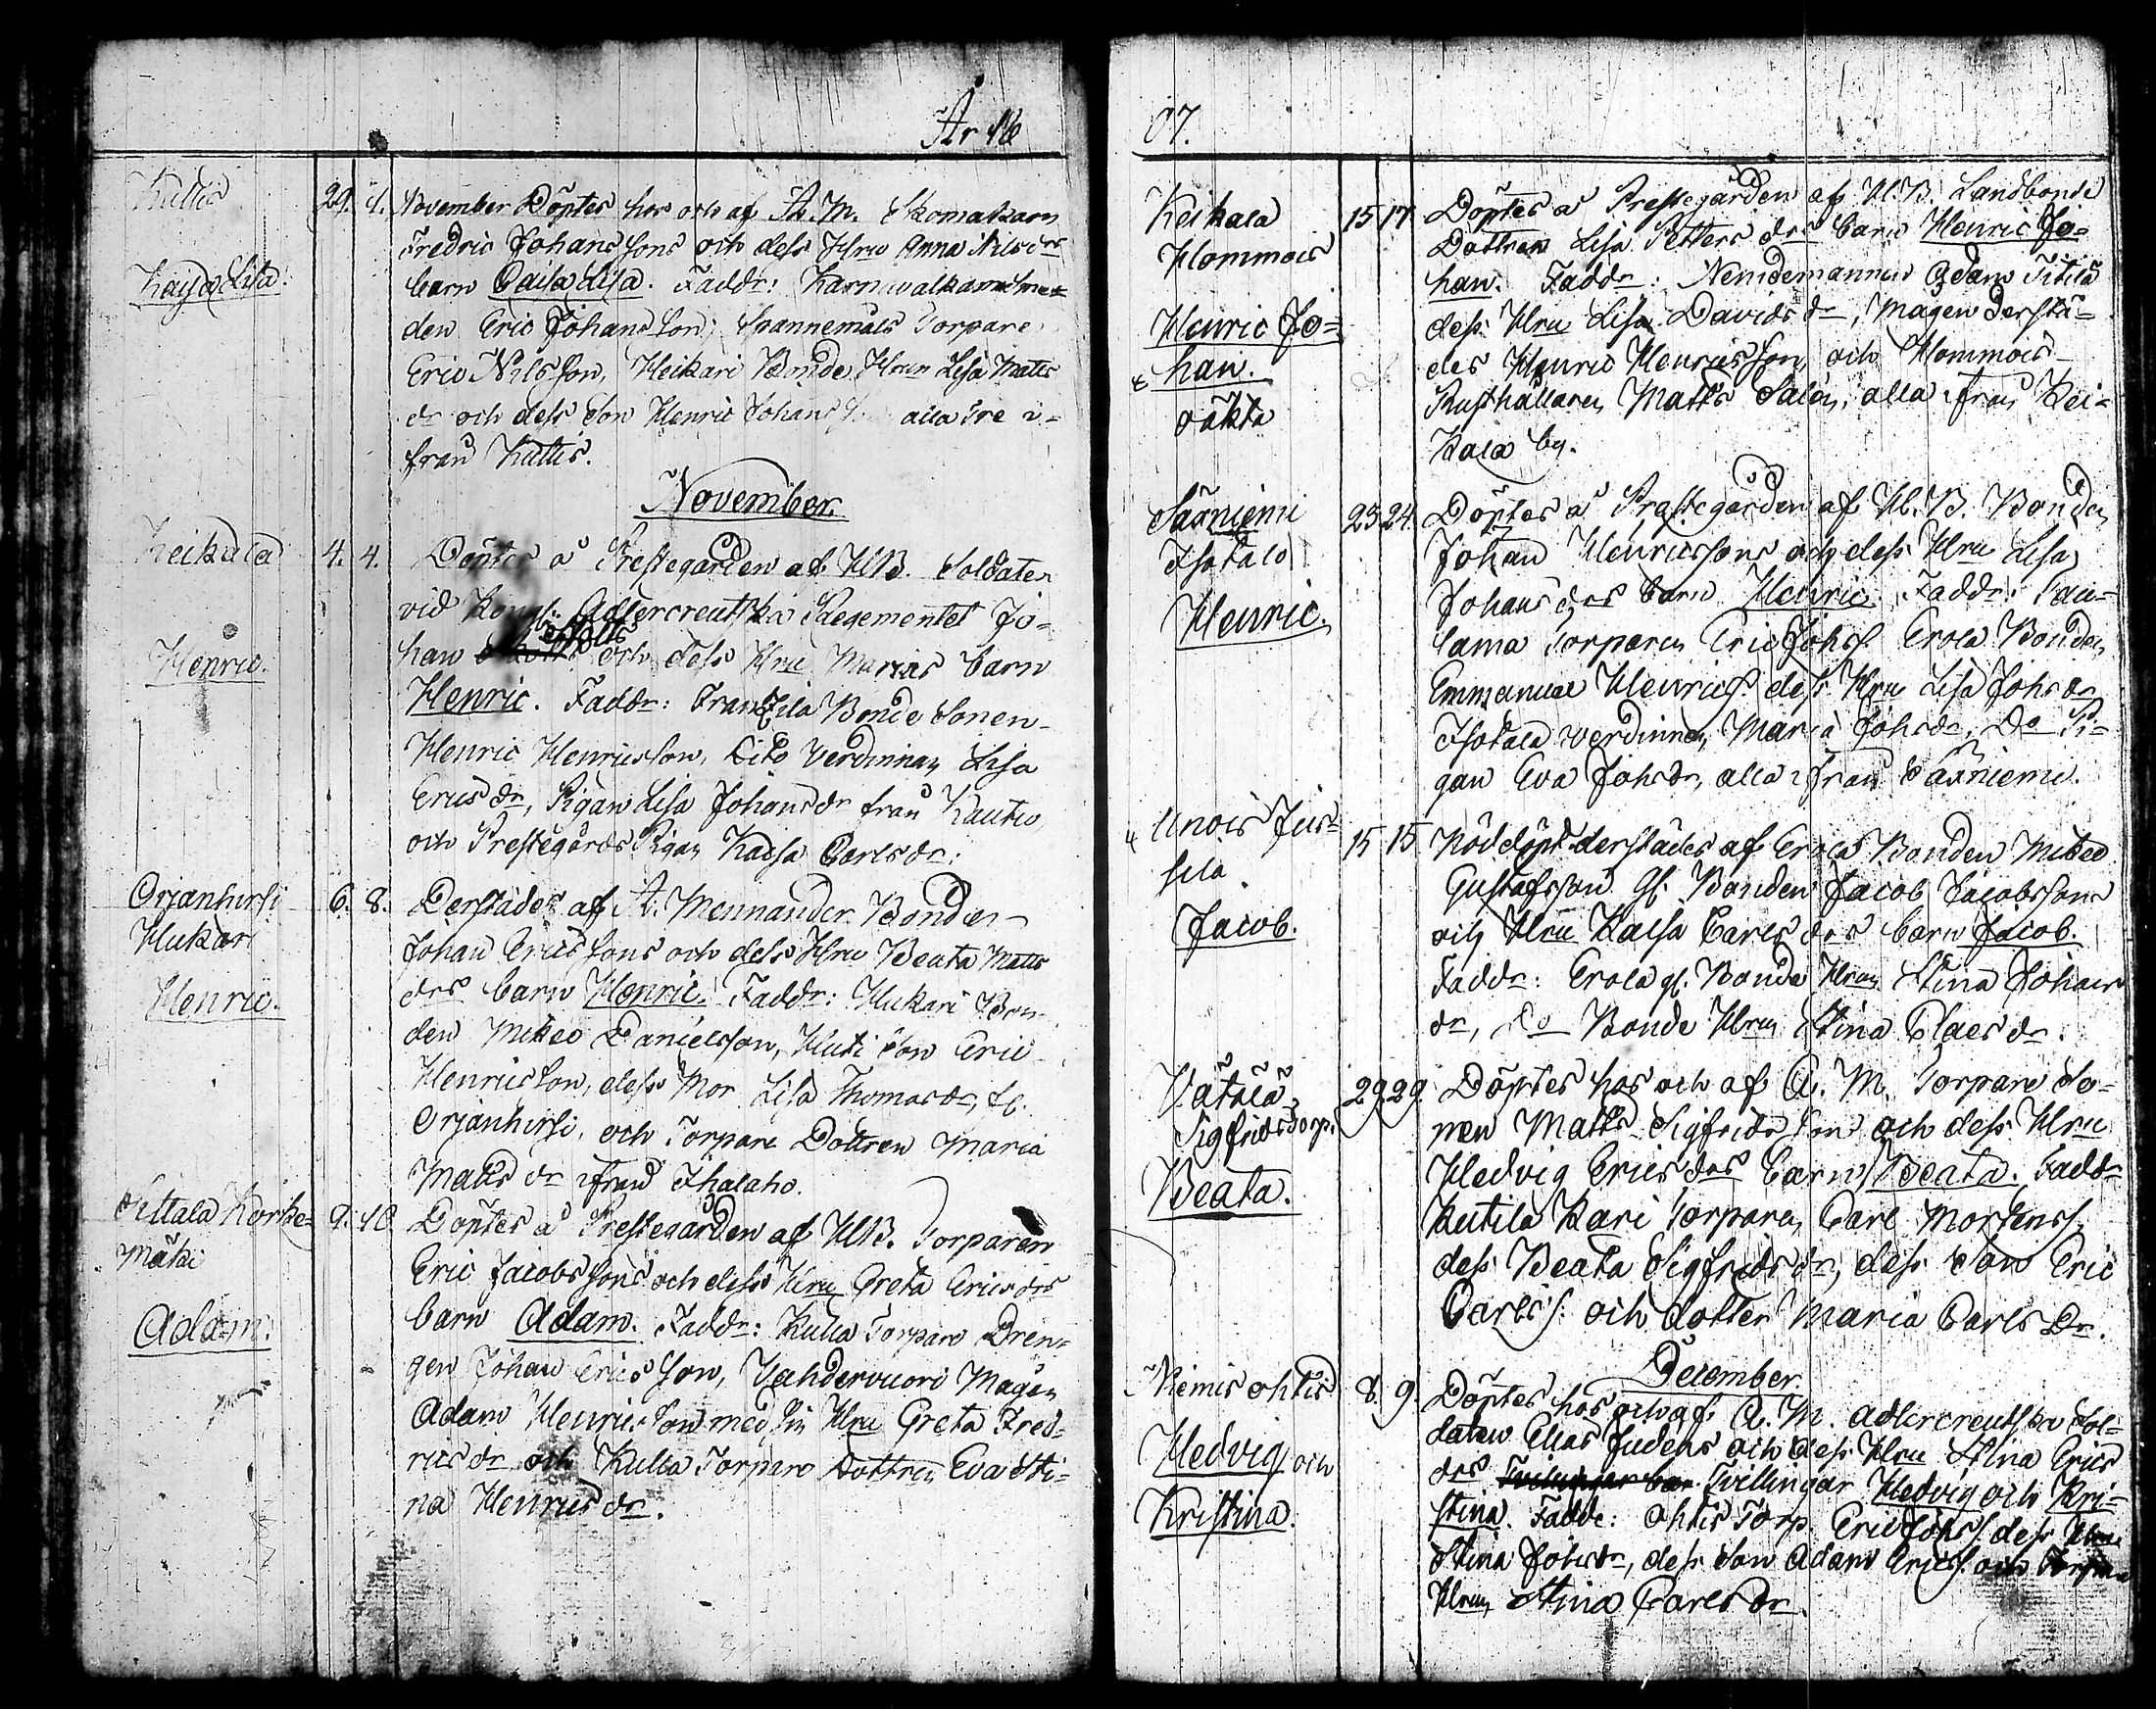 År 18
Kuttis
Kaisa Lisa:
29. 4. November Döptes hos och af A. M. Skomakarn
Fredric Johans Sons och dess Hru Anna Nils drs
barn Caisa Lisa. Faddr: Karnuvalkama Sme-
den Eric Johans Son, Spannemäls Torpare
Eric Nils Son, Heikari Bonde Hrun Lisa Matts
dr och dess Son Henric Johans S. alla tre i-
från Kuttis.
November.
Keikala
Henric.
4. 4. Döptes å Prestegården af HB. Soldaten
vid Kongl. Adlercreutska Regementet Jo-
han och dess Hru Marias barn
Henric. Faddr: Frantzila Bonde Sonen
Henric Henricsson, Dito Verdinnan Lisa
Erics dr, Pigan Lisa Johans dr från Kautu
och Prestegårds Pigan Kaisa Carls dr:
Orjanhirsi
Hukari
Henric.
6. 8. Derstädes af A. Mennander Bonden
Johan Erics Sons och dess Hru Beata Matts
drs barn Henric. Faddr: Hukari Bon-
den Mikel Danielsson, Huti Son Eric
Henricsson, dess Mor Lisa Thomas dr, fr.
Orjanhirsi, och Torpare Dottren Maria
Matts dr ifrån Ihalaho.
Sittala Korke-
mäki
Adam.
9. 10. Döptes å Prestegården af HB. Torparen
Eric Jacobs Sons och dess Hru Greta Erics drs
barn Adam. Faddr: Kulla Torpare Dren-
gen Johan Erics Son, Vahdervuori Mågen
Adam Henrics Son med sin Hru Greta Fred-
rics dr och Kulla Torpare Dottren Eva Sti-
na Henrics dr.
07.
Keikala
Hommois
Henric Jo-
han.
oäkta
15 17 Döptes å Prestegården af H.B. Landbonde
Dottren Lisa Petters drs barn Henric Jo-
han. Faddr: Nemdemannen Adam Titila
dess Hru Lisa Davids dr, Mågen derstä-
des Henric Henricsson, och Hommois
Rusthållaren Matts Salon, alla ifrån Kei-
kala by.
Särniemi
Isotalo
Henric.
23 24. Döptes å Prestegården af H.B. Bonden
Johan Henricssons och dess Hru Lisa
Johans drs barn Henric. Faddr: Pau-
lama Torparen Eric Johs S. Erola Bonden
Emmanuel Henrics S. dess Hru Lisa Johs dr
Isotalo verdinnan Maria Johs dr, Do Pi-
gan Eva Johs dr, alla ifrån Särniemi.
Unois Jus-
sila
Jacob.
15 15 Nöddöpt derstädes af Erola Bonden Mikel
Gustafsson Gl. Bonden Jacob Jacobssons
och Hru Kaisa Carls drs barn Jacob.
Faddr: Erola gl. Bonde Hrun Stina Johans
dr, Do Bonde Hrun Stina Claes dr.
Vätälä
Sigfrids torp.
Beata.
29 29 Döptes hos och af A. M. Torpare So-
nen Matts Sigfrids Son och dess Hru
Hedvig Erics drs barn Beata. Faddr
Kutila Kari Torparen Carl Mortens S.
dess Beata Sigfrids dr, dess Son Eric
Carls S: och dotter Maria Carls Dr.
December
Niemis ohtis
Hedvig och
Kristina.
8. 9. Döptes hos och af A. M. Adlercreutska Sol-
daten Elias Judens och dess Hru Stina Erics
drs Tvillingar Hedvig och Kri-
stina. Faddr: Ohtis Torp. Eric Johs S. dess Hru
Stina Johs dr, dess Son Adam Erics S. och
Hrun Stina Carls dr